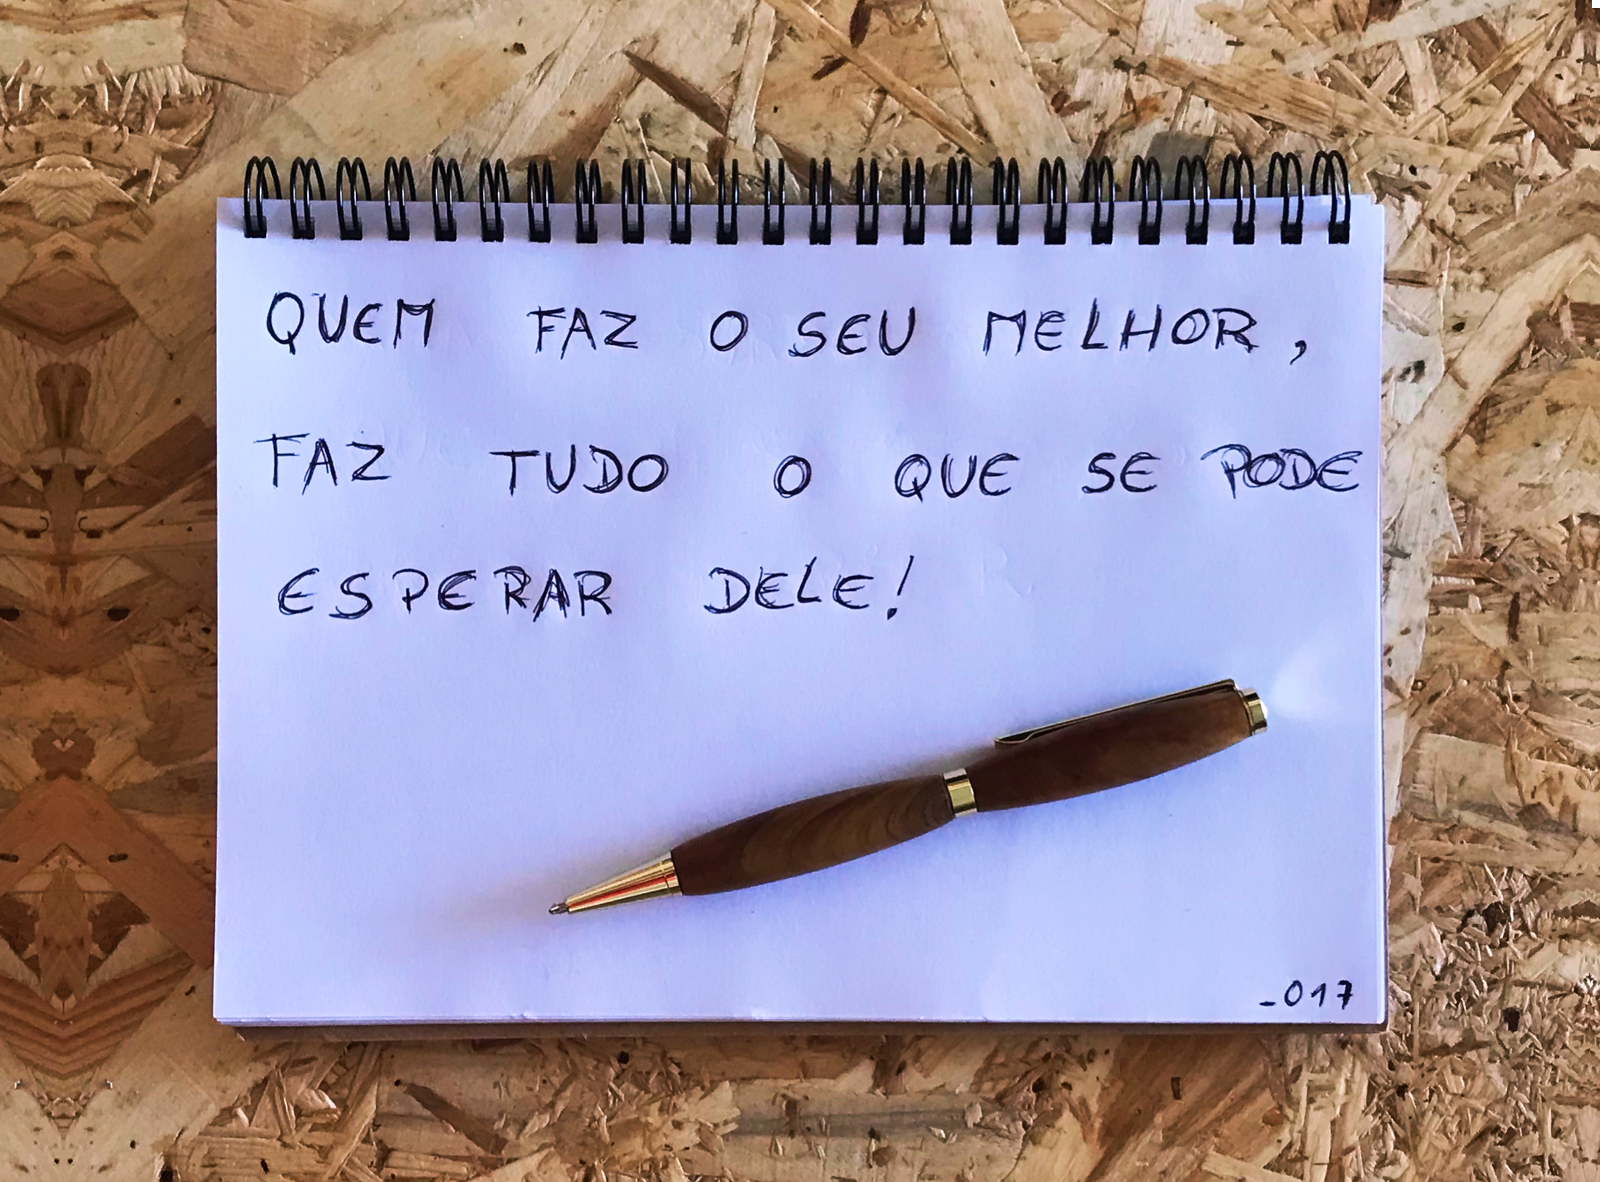 QUEM FAZ O SEU MELHOR,
FAZ TUDO O QUE SE PODE
ESPERAR DELE!
-017